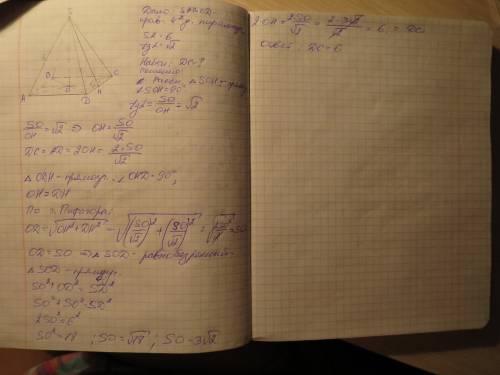 Дано: SABCD -
прав. 4х уг. пирамида
SA = 6
tg∠ = √2
Найти: DC - ?
Решение:
∠SOH = 90°
tg∠ = SO/OH = √2
SO/OH = √2 ⇒ OH = SO/√2
DC = AD = 2OH = 2·SO/√2
△ ODH - прямоуг. ∠OHD = 90°,
OH = DH
По т. Пифагора:
OD = √(OH² + DH²) = √((SO/√2)² + (SO/√2)²) = = SO
OD = SO ⇒ △SOD - равнобедренный
△SOD - прямоуг.
SO² + OD² = SD²
SO² + SO² = SD²
2SO² = 6²
SO² = 18 ; SO = √18 ; SO = 3√2
2OH = 2SO/√2 = 2·3√2/√2 = 6 = DC
Ответ: DC = 6
S
A
D
C
H